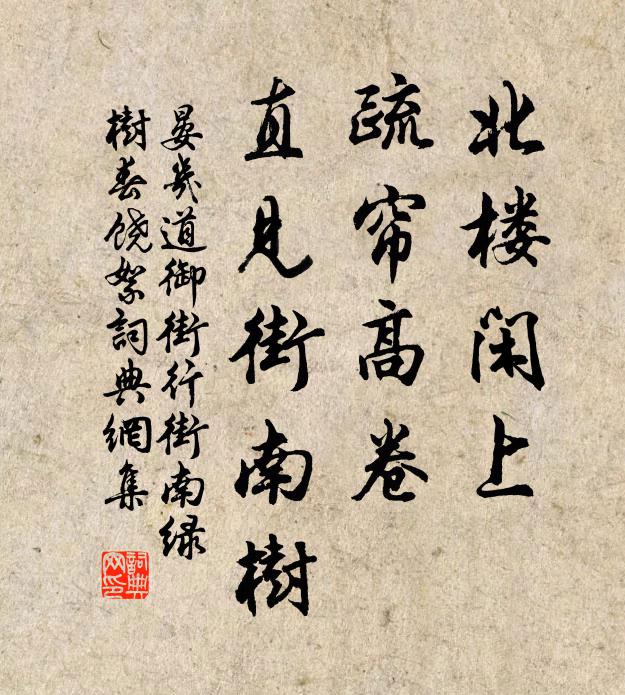 北楼闲上
疏帘高卷
直见街南樹
晏幾道御街行街南绿
樹春饶絮詞典網集
詞典
网印